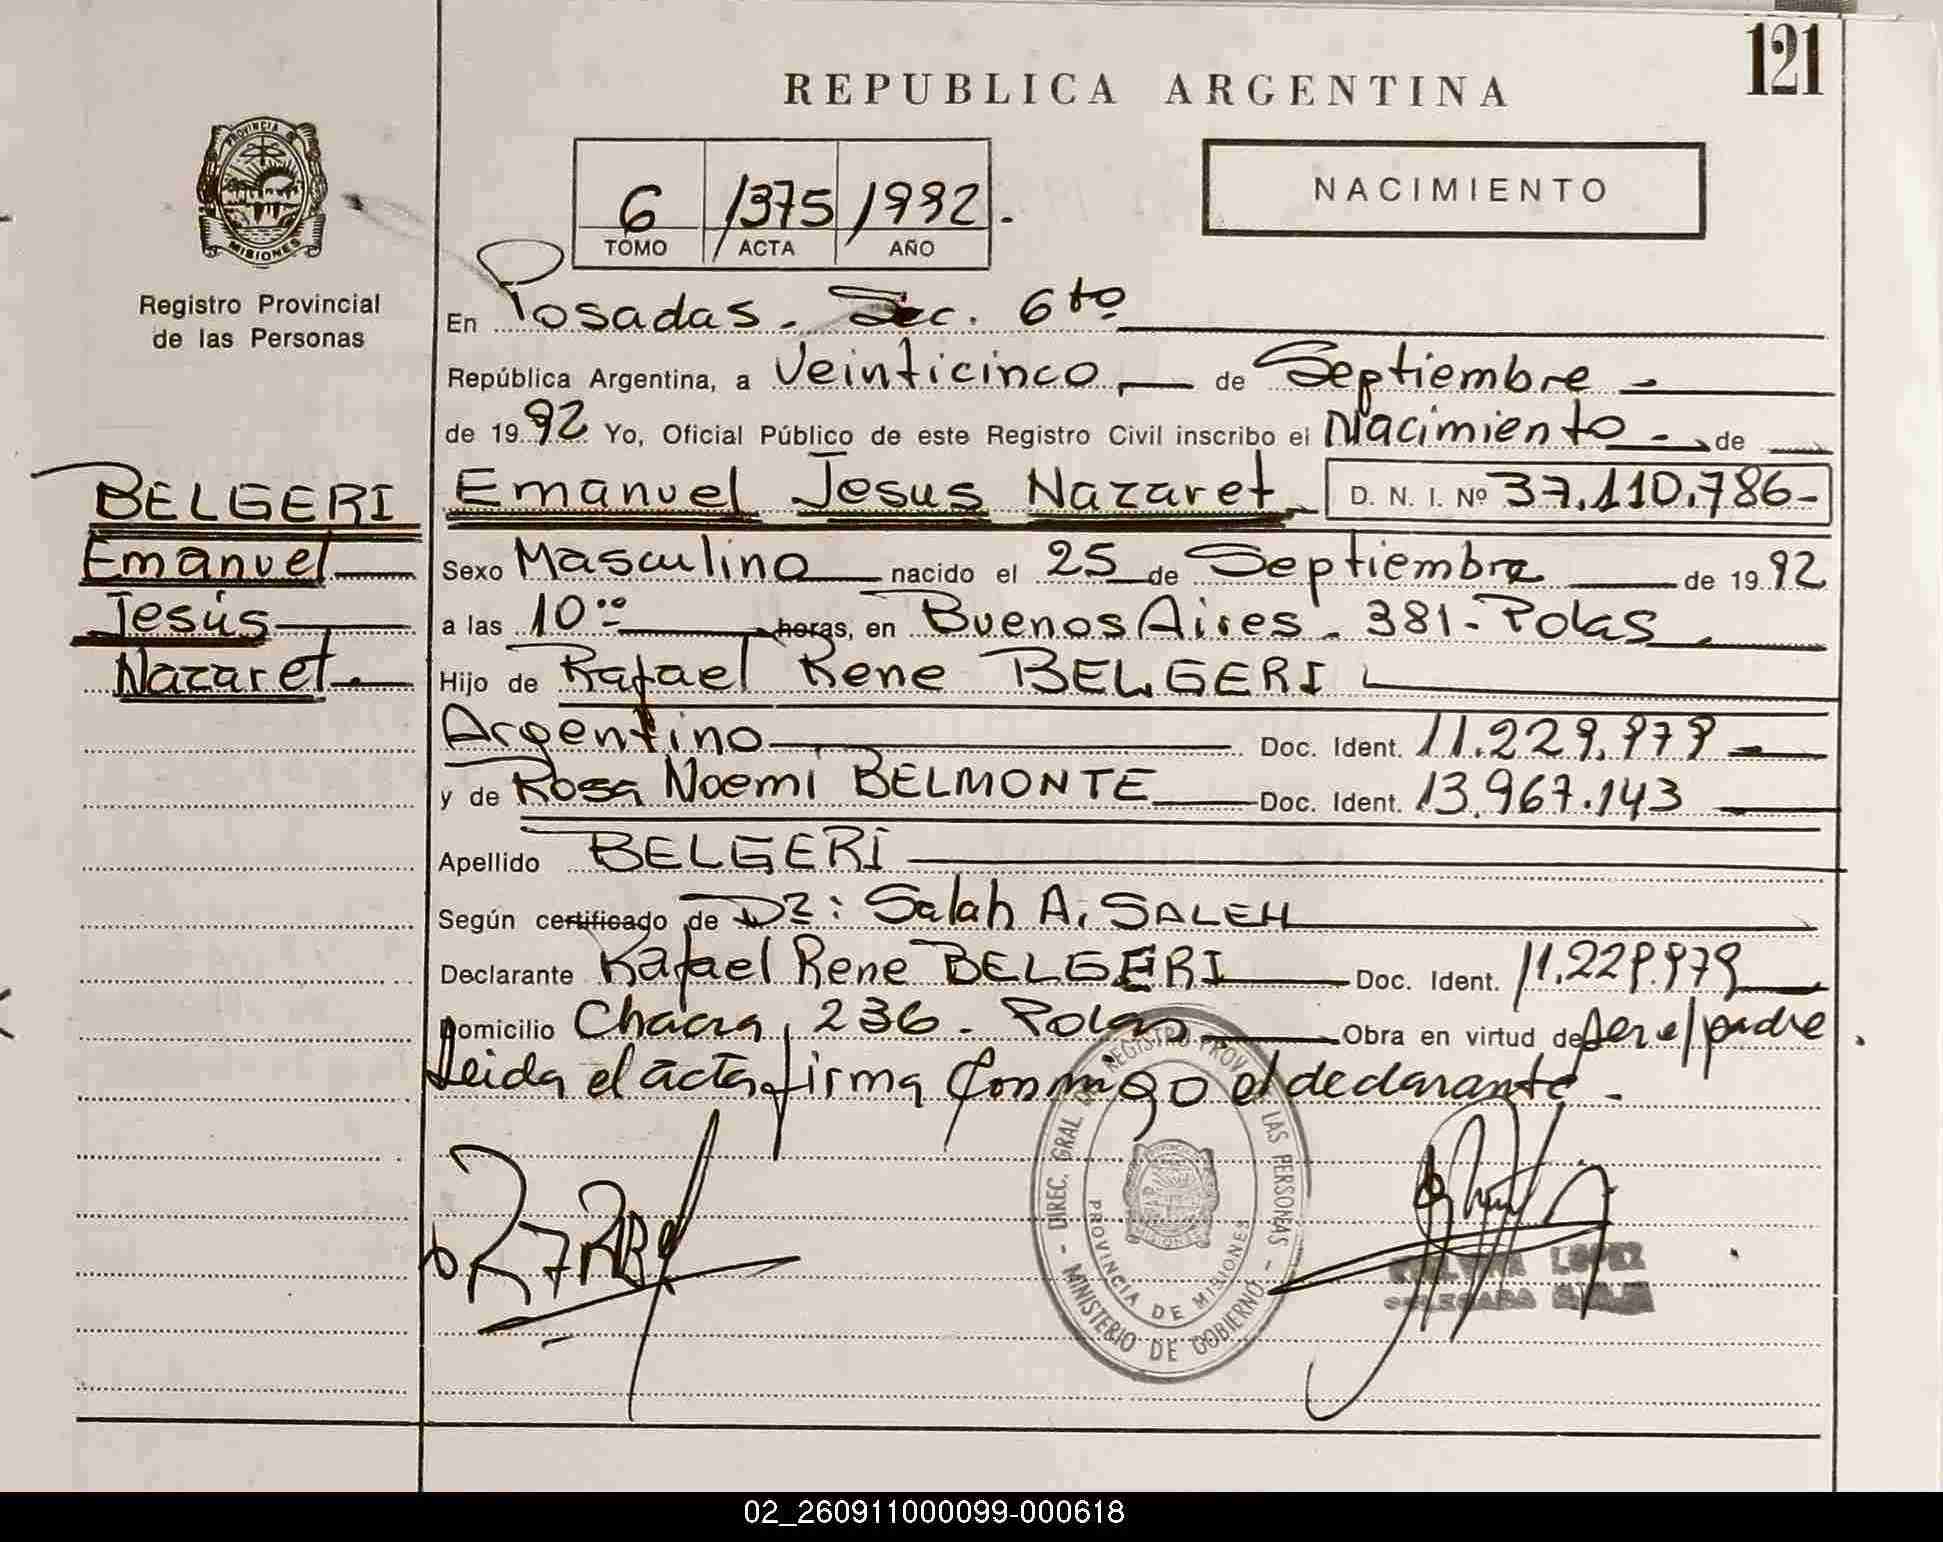 121
REPUBLICA ARGENTINA
PROVINCIA DE
MISIONES
Registro Provincial
de las Personas
NACIMIENTO
6 /375 /1992.-
TOMO ACTA AÑO
En Posadas - Sec. 6to
República Argentina, a Veinticinco, de Septiembre -
de 1992 Yo, Oficial Público de este Registro Civil inscribo el Nacimiento - de
BELGERI
Emanuel
Jesús
Nazaret.
Emanuel Jesus Nazaret D. N. I. Nº 37.110.786-
Sexo Masculino nacido el 25 de Septiembre de 1992
a las 10:00 horas, en Buenos Aires - 381 - Pdas.
Hijo de Rafael Rene BELGERI
Argentino Doc. Ident. 11.229.979
y de Rosa Noemi BELMONTE Doc. Ident. 13.967.143
Apellido BELGERI
Según certificado de Dr: Salah A. SALEH
Declarante Rafael Rene BELGERI Doc. Ident. 11.229.979
Domicilio Chacra, 236 - Pdas Obra en virtud de ser el padre.
Leida el acta firma conmigo el declarante.
DIREC. GRAL DE REGISTRO PROV. LAS PERSONAS - MINISTERIO DE GOBIERNO -
PROVINCIA DE MISIONES
LOPEZ
02_260911000099-000618